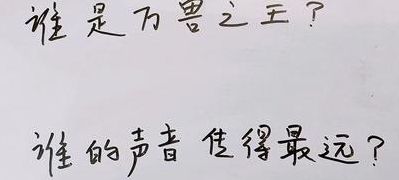 谁是万兽之王？
谁的声音传得最远？